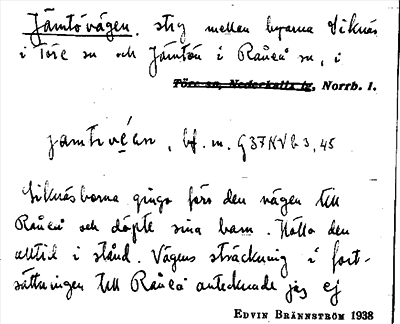 Jämtövägen, stig mellan byarna Siknäs
i Töre sn och Jämtön i Råneå sn, i
Töre sn, Nederkalix tg, Norrb. l.
bf. m. G37NVb3,45
Siknäsborna gingo förs den vägen till
Råneå och döpte sina barn. Hölls den
alltid i stånd. Vägens sträckning i fort-
sättningen till Råneå antecknade jag ej
EDVIN BRÄNNSTRÖM 1938